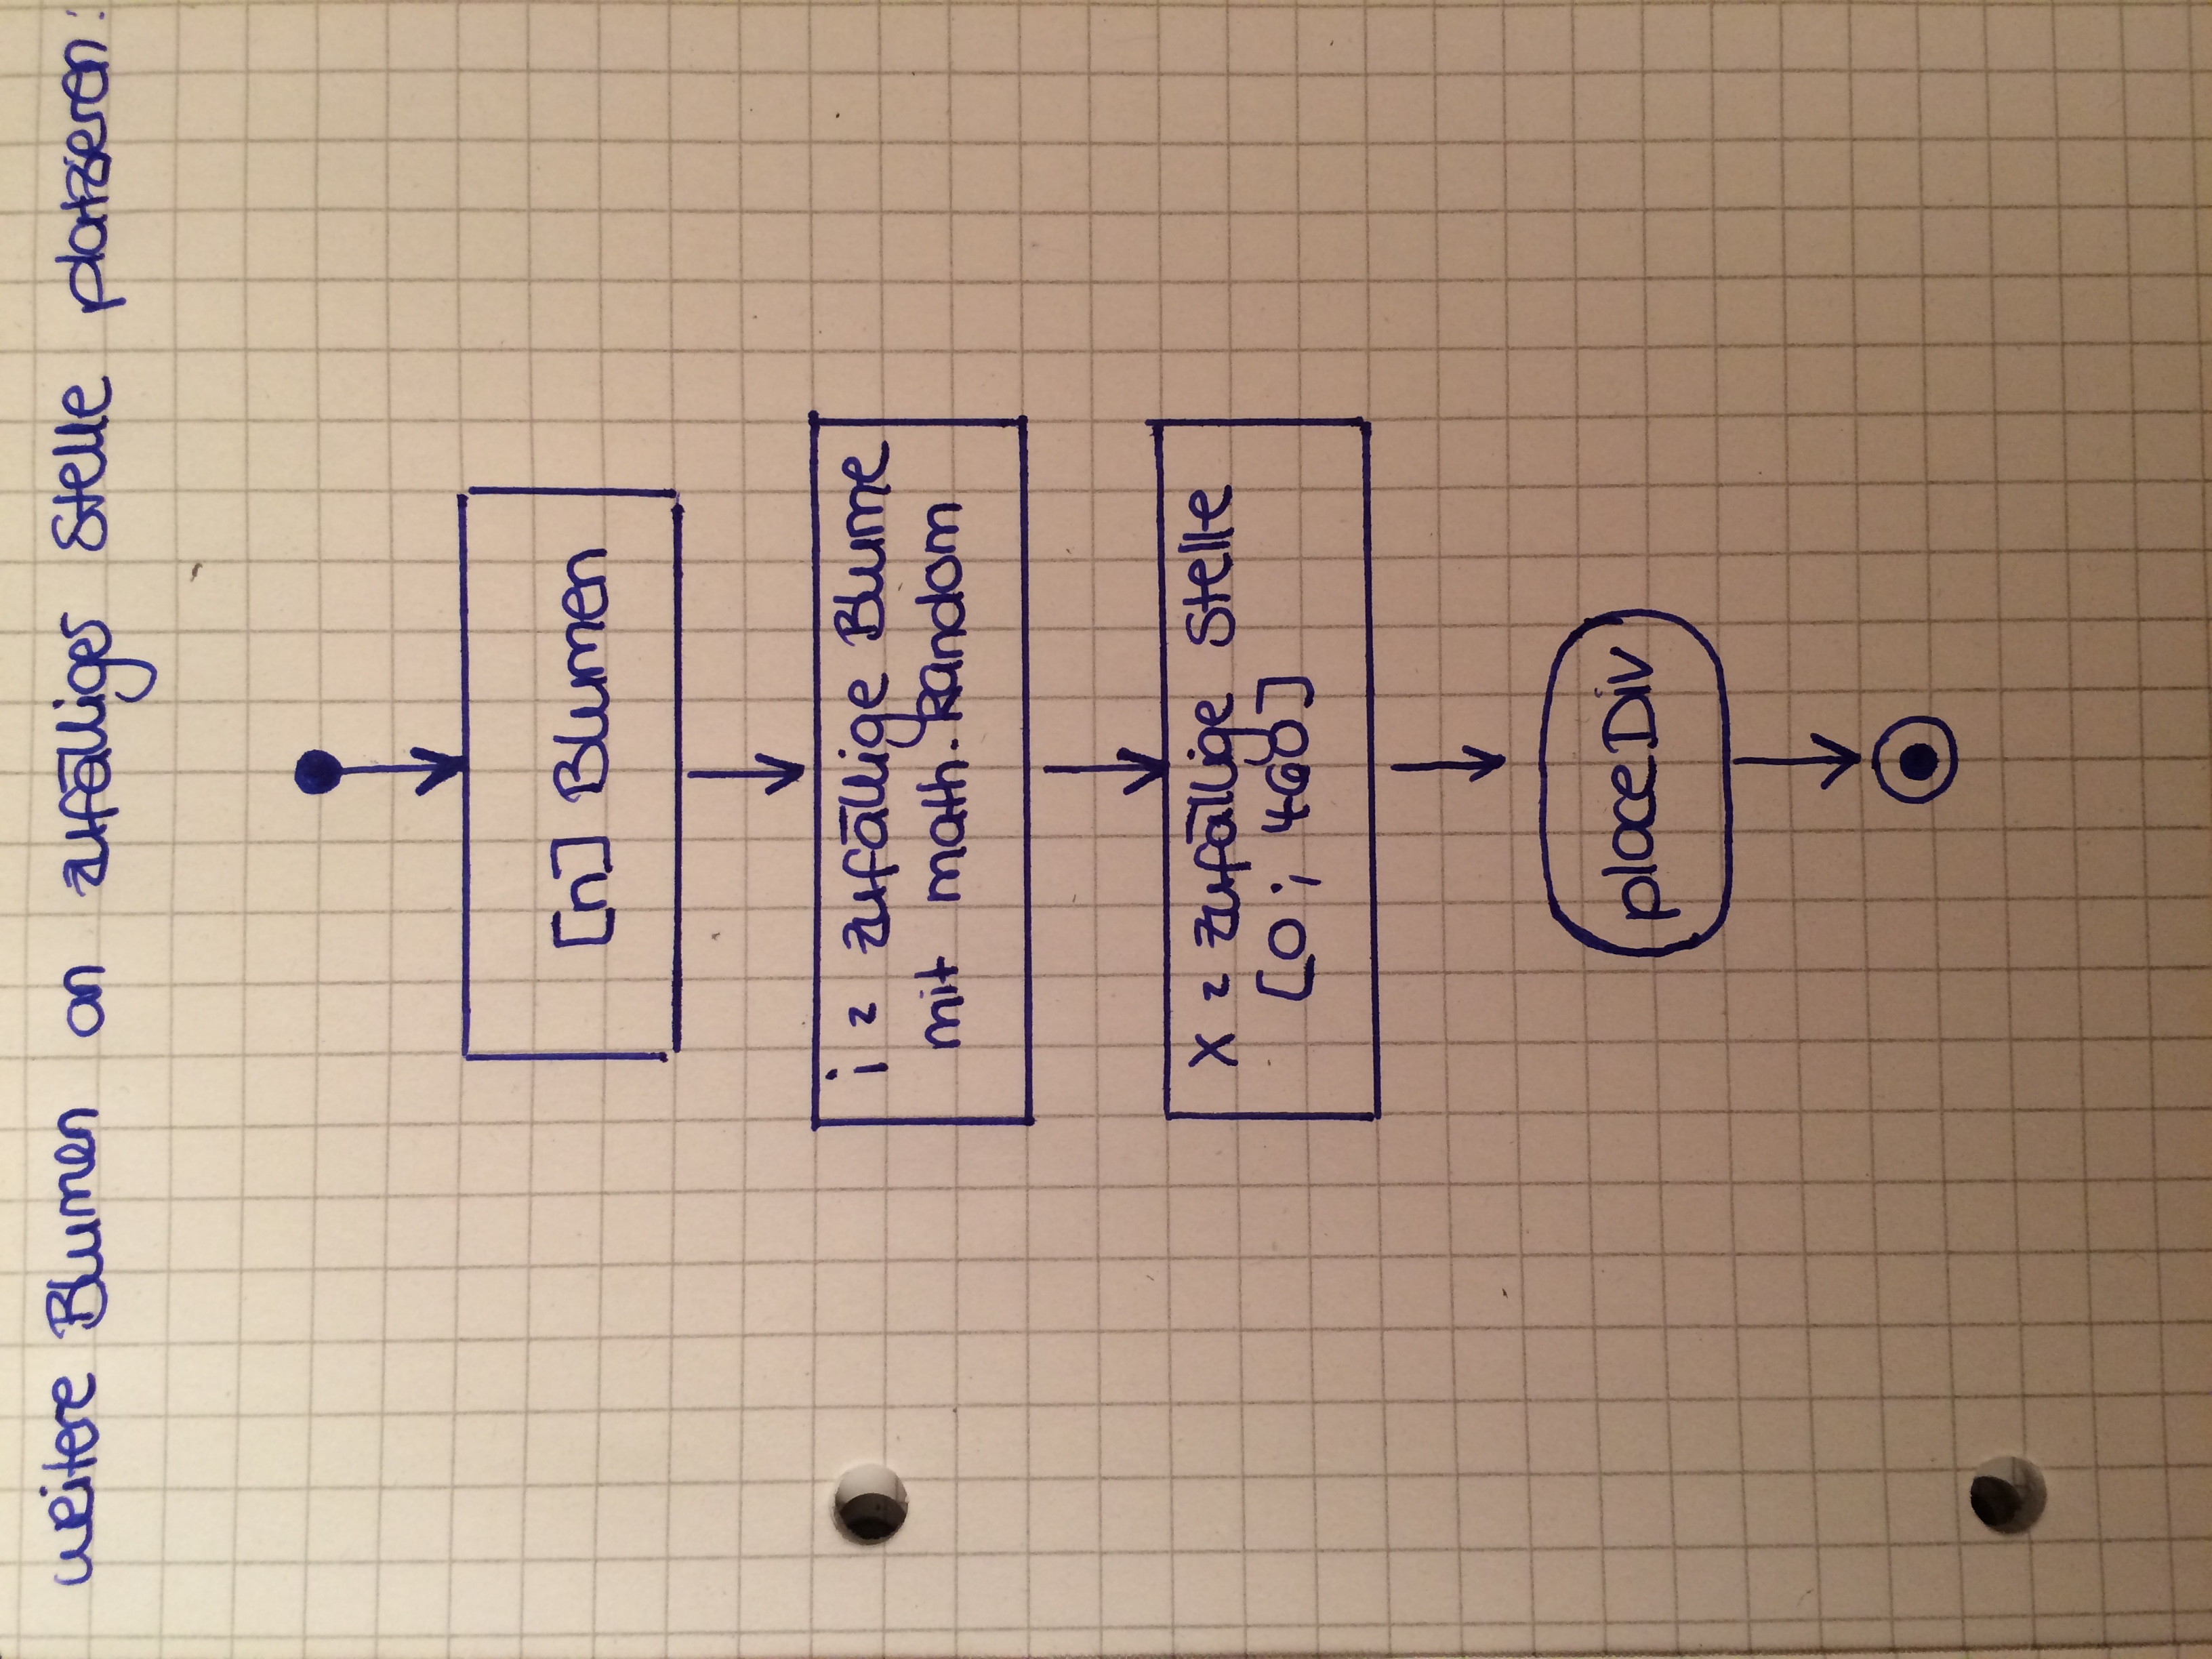 weitere Blumen an zufälliger Stelle platzieren:
[n] Blumen
i = zufällige Blume
mit math.random
x = zufällige Stelle
[0; 460]
placeDiv